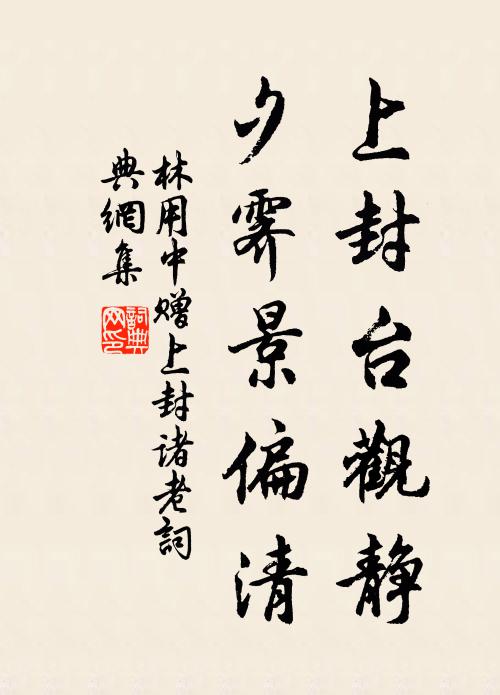 上封台觀静
夕霽景偏清
林用中赠上封诸老詞
典網集
詞典网印